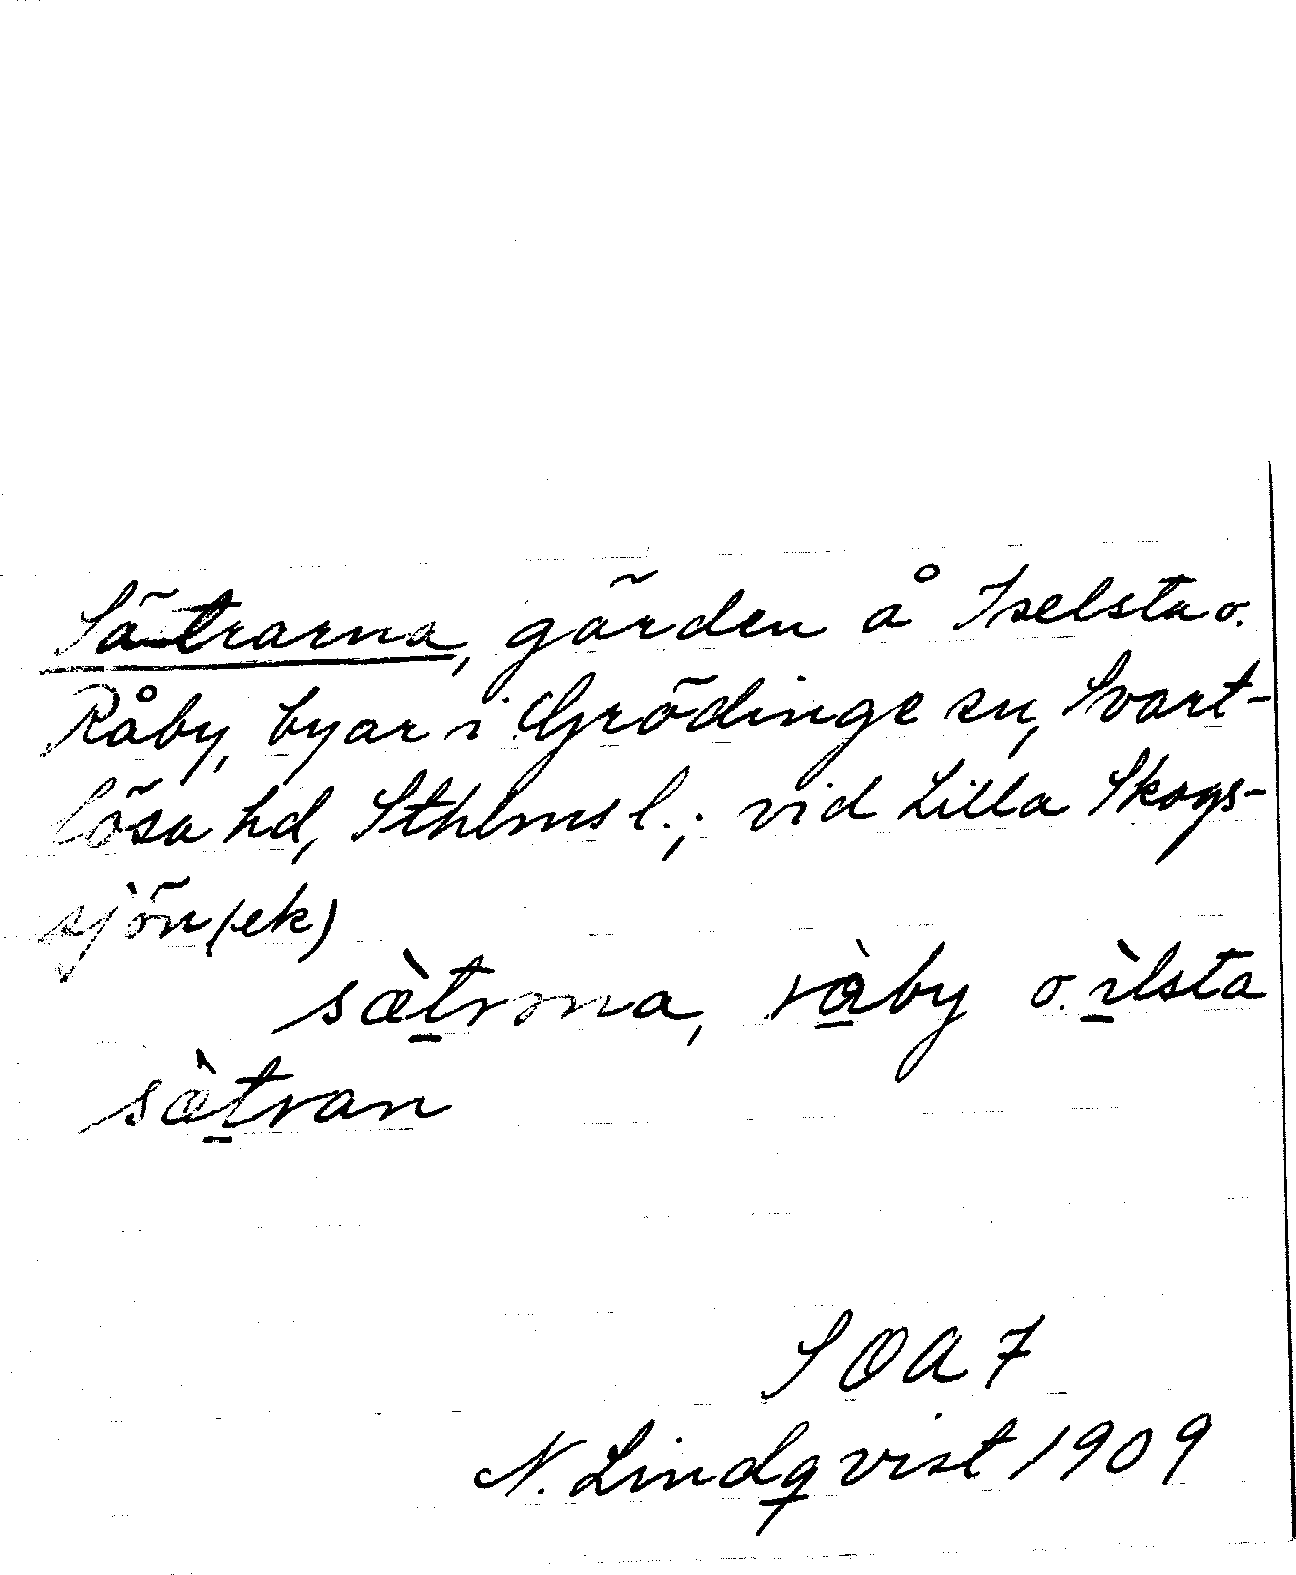 Sätrarna, gärden å Iselsta o.
Råby, byar i Grödinge sn, Svart-
lösa hd, Sthlms l.; vid Lilla Skogs-
sjön (ek)
sæ̀trna, ràby o. ìlsta
sæ̀tran
SOA 7
N. Lindqvist 1909